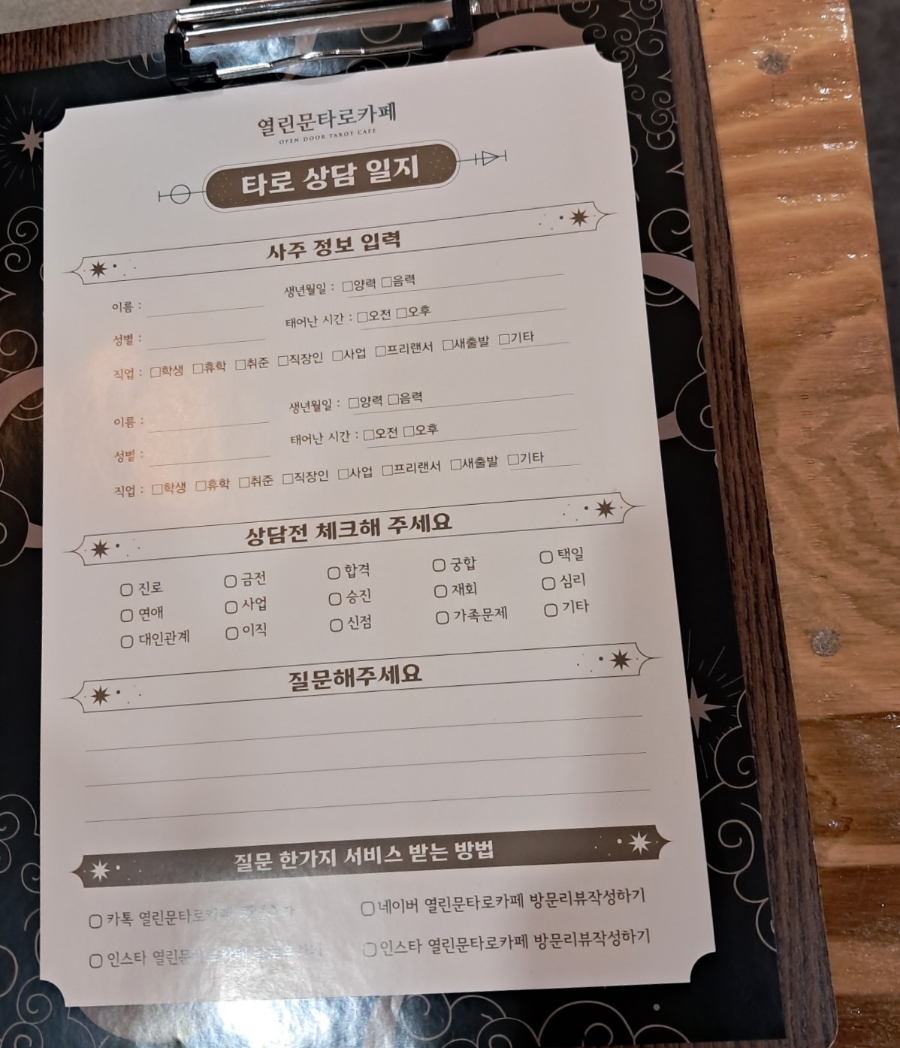 열린문타로카페
OPEN DOOR TAROT CAFE
타로 상담 일지
사주 정보 입력
이름 : 생년월일 : □양력 □음력
성별 : 태어난 시간 : □오전 □오후
직업 : □학생 □휴학 □취준 □직장인 □사업 □프리랜서 □새출발 □기타
이름 : 생년월일 : □양력 □음력
성별 : 태어난 시간 : □오전 □오후
직업 : □학생 □휴학 □취준 □직장인 □사업 □프리랜서 □새출발 □기타
상담전 체크해 주세요
□ 진로 □ 금전 □ 합격 □ 궁합 □ 택일
□ 연애 □ 사업 □ 승진 □ 재회 □ 심리
□ 대인관계 □ 이직 □ 신점 □ 가족문제 □ 기타
질문해주세요
질문 한가지 서비스 받는 방법
□ 카톡 열린문타로카페 □ 네이버 열린문타로카페 방문리뷰작성하기
□ 인스타 열린문타로카페 □ 인스타 열린문타로카페 방문리뷰작성하기